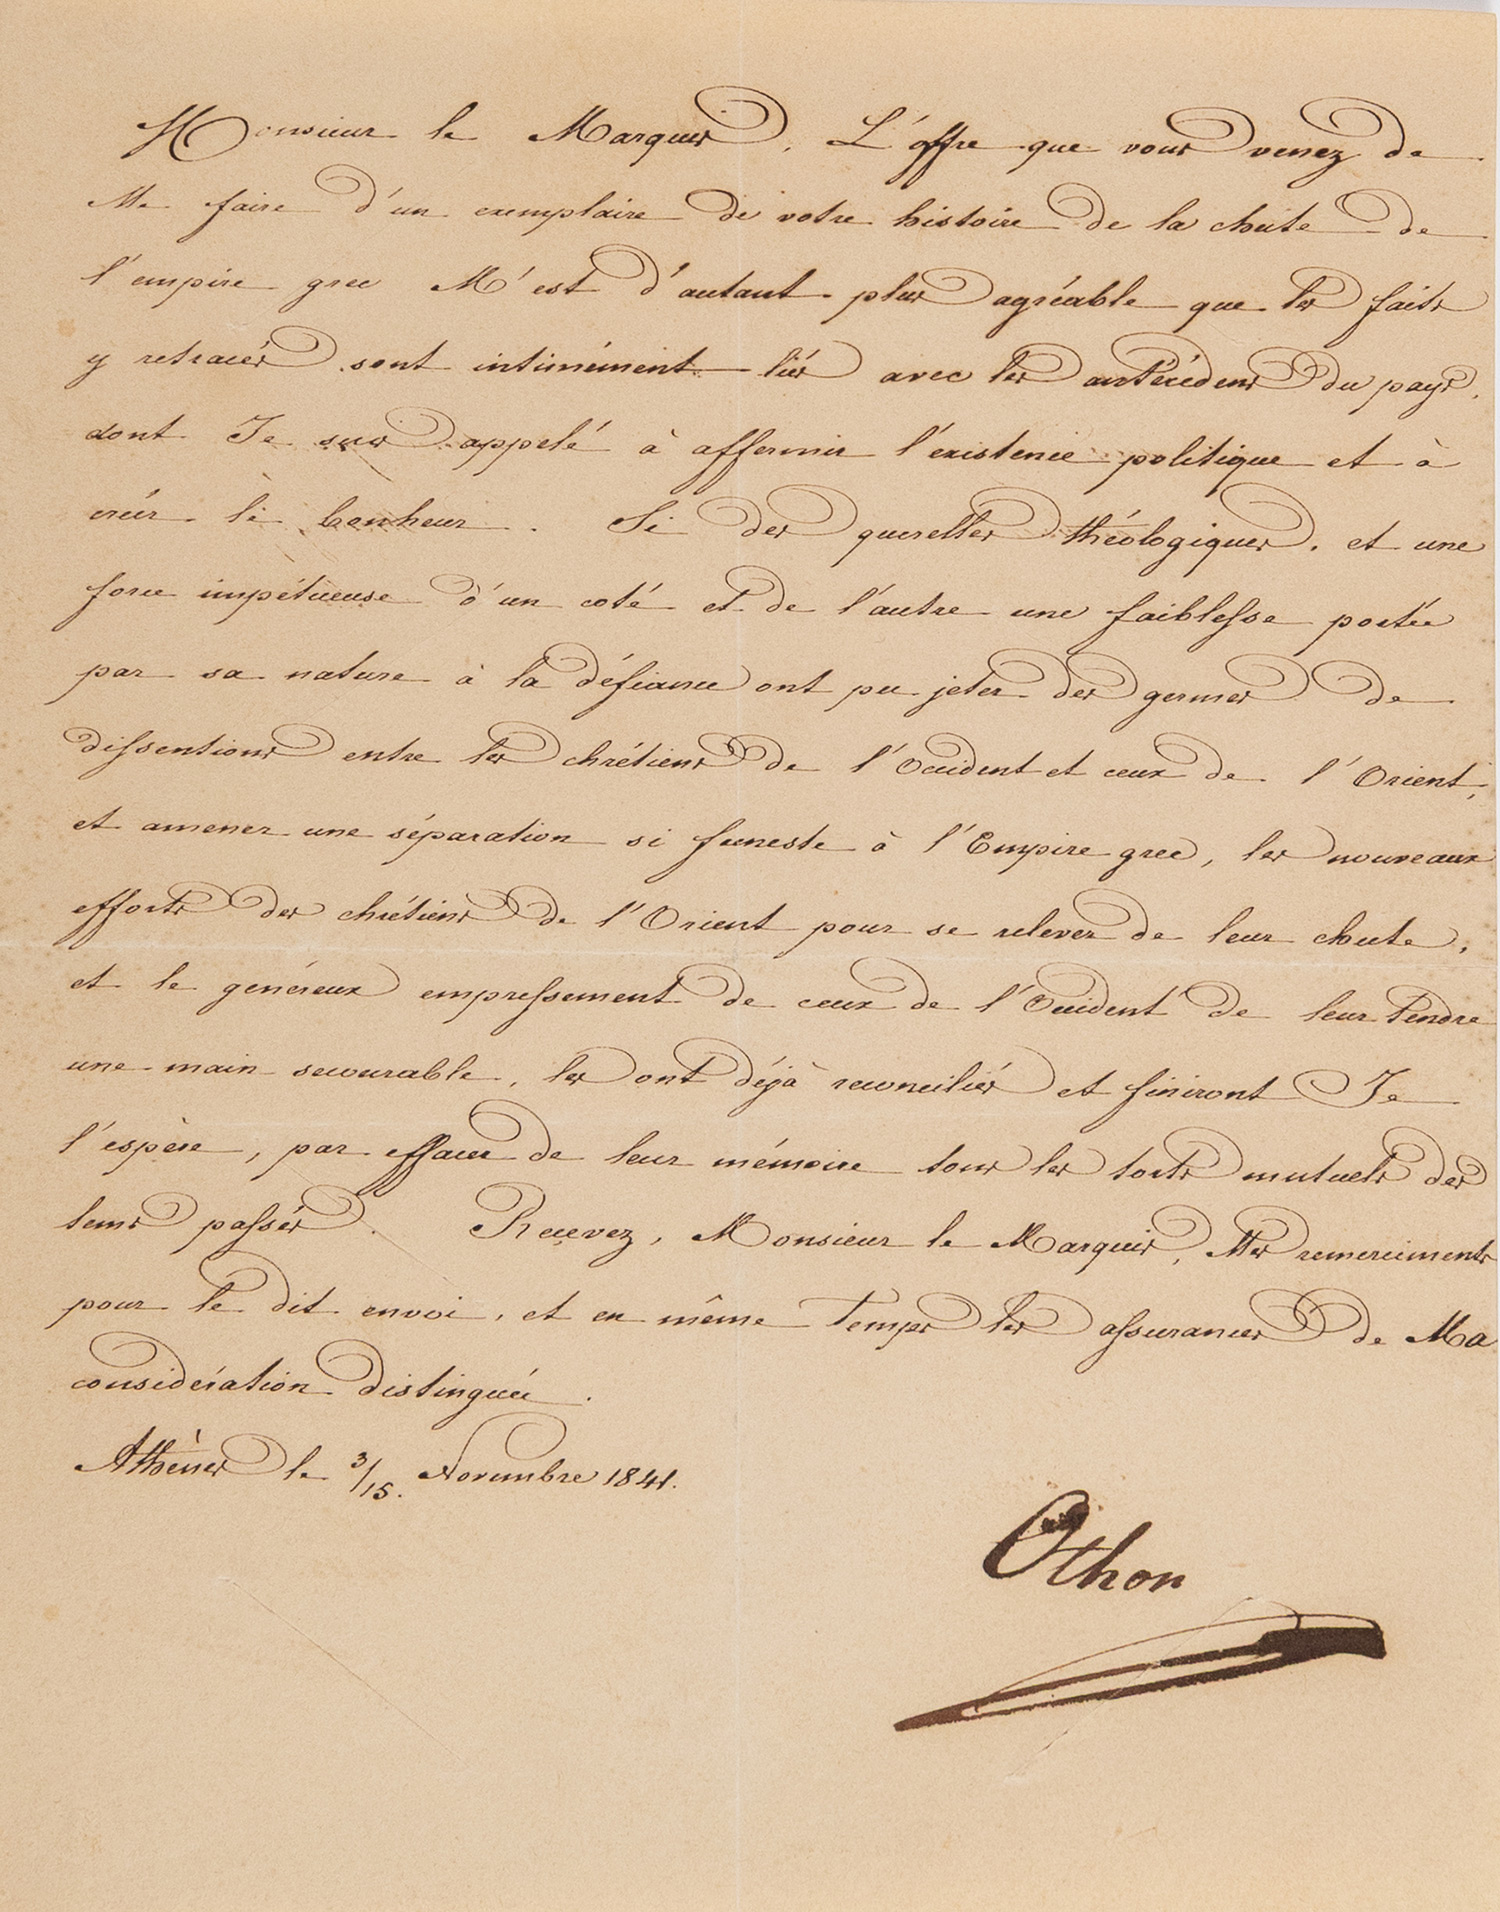 Monsieur le Marquis, L'offre que vous venez de
Me faire d'un exemplaire de votre histoire de la chute de
l'empire grec M'est d'autant plus agréable que les faits
y retracés sont intimément liés avec les antécédens du pays,
dont Je suis appelé à affermir l'existence politique et à
créer le bonheur. Si des querelles théologiques, et une
force impétueuse d'un coté et de l'autre une faiblesse portée
par sa nature à la défiance ont pu jeter des germes de
dissentions entre les chrétiens de l'Occident et ceux de l'Orient,
et amener une séparation si funeste à l'Empire grec, les nouveaux
efforts des chrétiens de l'Orient pour se relever de leur chute,
et le généreux empressement de ceux de l'Occident de leur tendre
une main secourable, les ont déjà reconciliés et finiront Je
l'espère, par effacer de leur mémoire tous les torts mutuels des
tems passés. Recevez, Monsieur le Marquis, Mes remerciments
pour le dit envoi, et en même temps les assurances de Ma
considération distinguée.
Athènes le 3/15. Novembre 1841.
Othon